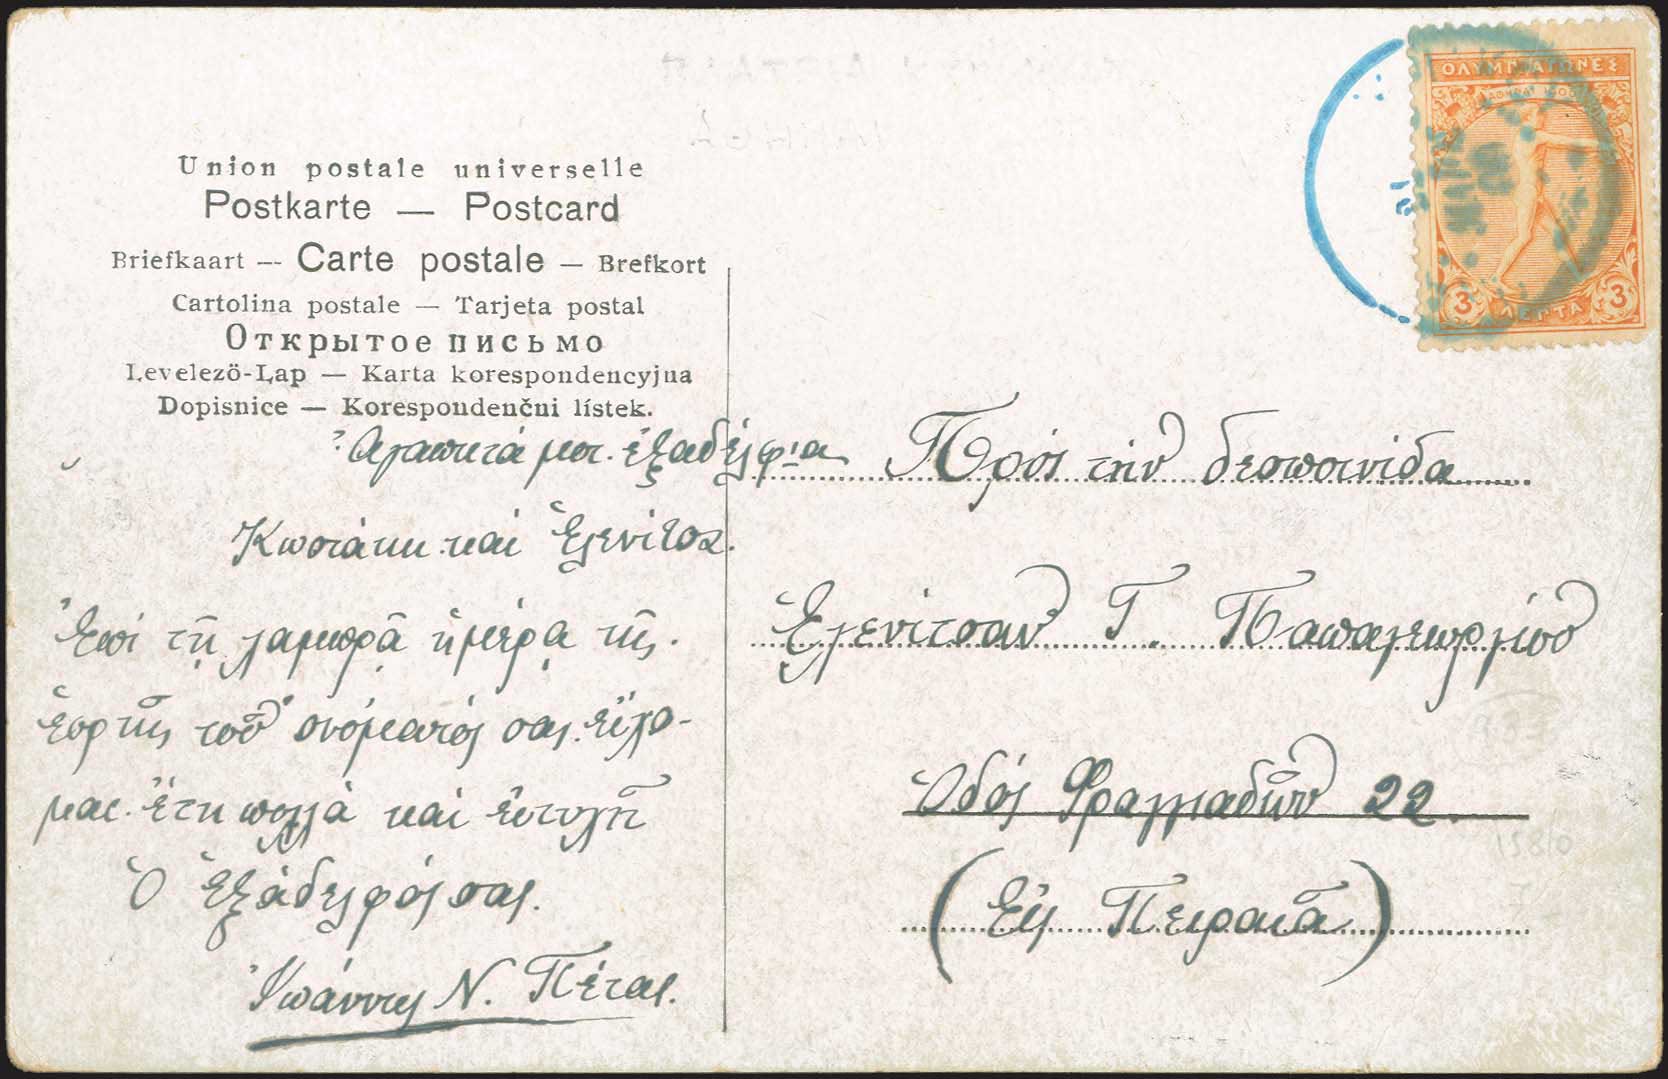 Union postale universelle
Postkarte — Postcard
Briefkaart — Carte postale — Brefkort
Cartolina postale — Tarjeta postal
Открытое письмо
Levelezö-Lap — Karta korespondencyjna
Dopisnice — Korespondenčni lístek.
Ἀγαπητά μοι ἐξαδέλφια
Κωστάκη καί Ἑλενίτσα.
Ἐπί τῇ λαμπρᾷ ἡμέρᾳ τῆς
ἑορτῆς τοῦ ὀνόματός σας εὔχο-
μαι ἔτη πολλά καί εὐτυχῆ
Ὁ Ἐξάδελφός σας.
Ἰωάννης Ν. Πέτας.
ΟΛΥΜΠ. ΑΓΩΝΕΣ
3 ΛΕΠΤΑ 3
Πρός τήν δεσποινίδα
Ἑλενίτσαν Γ. Παπαγεωργίου
Ὁδός Φραγγιαδῶν 22.
(Εἰς Πειραιᾶ)